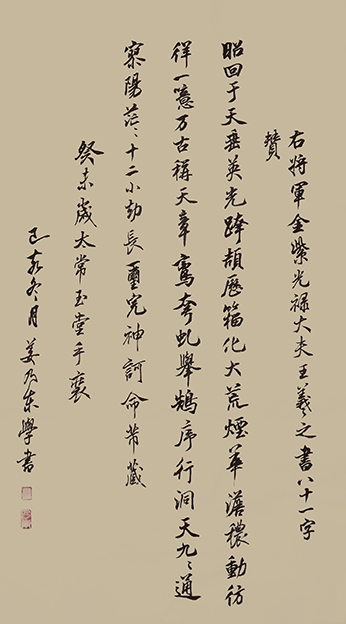 右將軍金紫光禄大夫王羲之書八十一字
贊
昭回于天垂英光跨頡歷籀化大荒煙華澹穠動彷
徉一噫万古稱天章鸞夸虬舉鵠序行洞天九〻通
寥陽茫〻十二小劫長璽完神訶命芾藏
癸未歲太常玉堂手裝
己亥冬月姜乃东學書